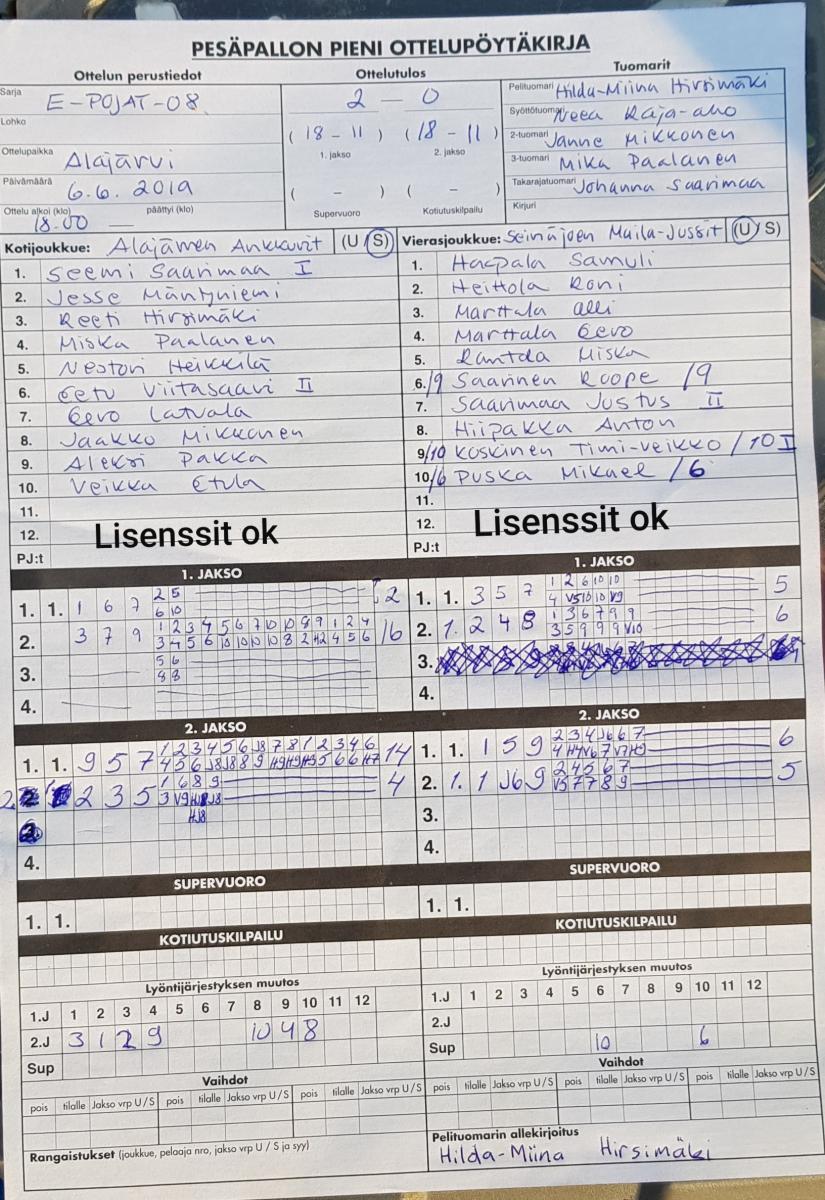 PESÄPALLON PIENI OTTELUPÖYTÄKIRJA
Ottelun perustiedot
Sarja E-POJAT-08
Lohko
Ottelupaikka Alajärvi
Päivämäärä 6.6.2019
Ottelu alkoi (klo) 18.00 päättyi (klo)
Ottelutulos
2 - 0
(18 - 11) (18 - 11)
1. jakso 2. jakso
( - ) ( - )
Supervuoro Kotiutuskilpailu
Tuomarit
Pelituomari Hilda-Miina Hirsimäki
Syöttötuomari Neea Raja-aho
2-tuomari Janne Mikkonen
3-tuomari Mika Paalanen
Takarajatuomari Johanna Saarimaa
Kirjuri
Kotijoukkue: Alajärven Ankkurit (U S)
1. Seemi Saarimaa I
2. Jesse Mäntyniemi
3. Reeti Hirsimäki
4. Miska Paalanen
5. Nestori Heikkilä
6. Eetu Viitasaari II
7. Eevo Latvala
8. Jaakko Mikkonen
9. Aleksi Pakka
10. Veikka Etula
11.
12.
PJ:t
Lisenssit ok
Vierasjoukkue: Seinäjoen Maila-Jussit (U S)
1. Haapala Samuli
2. Heittola Roni
3. Marttala Olli
4. Marttala Eevo
5. Rantala Miska
6./9 Saarinen Roope /9
7. Saarimaa Justus II
8. Hiipakka Anton
9/10 Koskinen Timi-Veikko /10 I
10./6 Puska Mikael /6
11.
12.
PJ:t
Lisenssit ok
1. JAKSO
1. 1. 1 6 7 2 5 2
6 10
2. 3 7 9 1 2 3 4 5 6 7 10 10 8 9 1 2 4 16
3. 5 6
8 8
4.
1. JAKSO
1. 1. 3 5 7 1 2 6 10 10 5
4 V5 10 10 V9
2. 1. 2 4 8 1 3 6 7 9 9 6
3 5 9 9 9 V10
3.
4.
2. JAKSO
1. 1. 9 5 7 1 2 3 4 5 6 J8 7 8 1 2 3 4 6 14
2. 2 3 5 1 6 8 9 4
4.
2. JAKSO
1. 1. 1 5 9 2 3 4 J6 6 7 6
2. 1. 1 J6 9 2 4 5 6 7 5
V5 7 7 8 9
3.
4.
SUPERVUORO
1. 1.
SUPERVUORO
1. 1.
KOTIUTUSKILPAILU
KOTIUTUSKILPAILU
Lyöntijärjestyksen muutos
1.J 1 2 3 4 5 6 7 8 9 10 11 12
2.J 3 1 2 9 10 4 8
Sup
Lyöntijärjestyksen muutos
1.J 1 2 3 4 5 6 7 8 9 10 11 12
2.J
Sup 10 6
Vaihdot
pois tilalle Jakso vrp U/S pois tilalle Jakso vrp U/S pois tilalle Jakso vrp U/S
Vaihdot
pois tilalle Jakso vrp U/S pois tilalle Jakso vrp U/S pois tilalle Jakso vrp U/S
Rangaistukset (joukkue, pelaaja nro, jakso vrp U / S ja syy)
Pelituomarin allekirjoitus
Hilda-Miina Hirsimäki